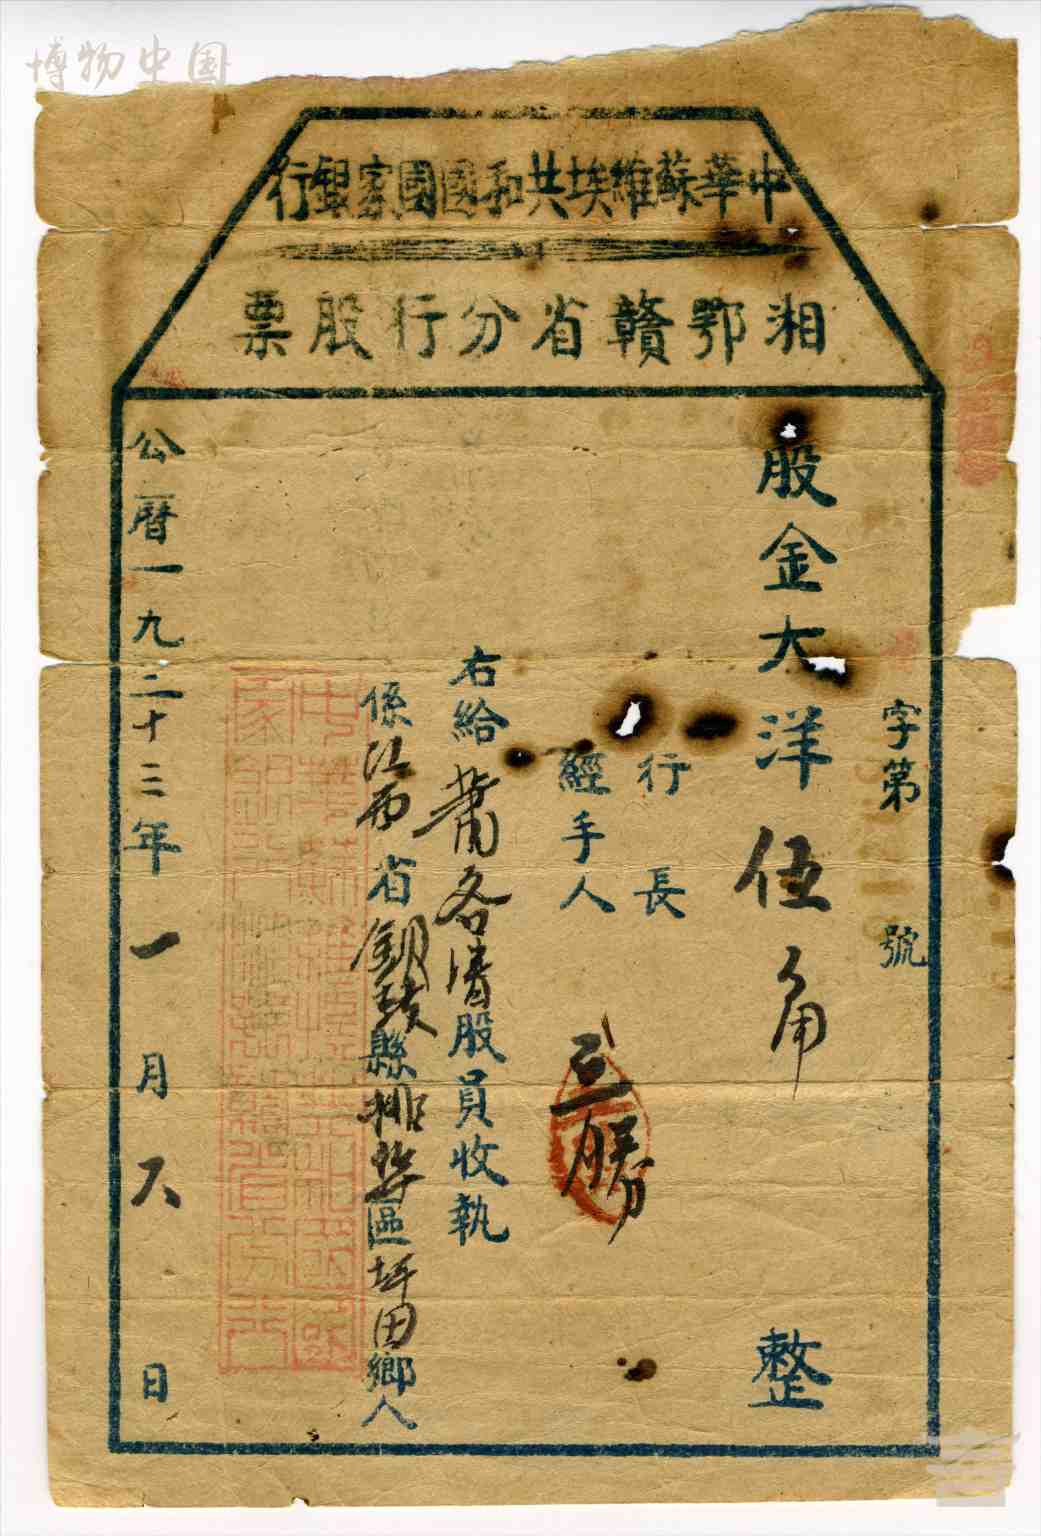 博物中国
中華蘇維埃共和國國家銀行
湘鄂贛省分行股票
字第 號
股金大洋伍角整
行長
經手人 三勝
右給 蕭各清股員收執
係江西省銅鼓縣排埠區坪田鄉人
公曆一九三十三年一月六日
中華蘇維埃共和國國家銀行湘鄂贛省分行